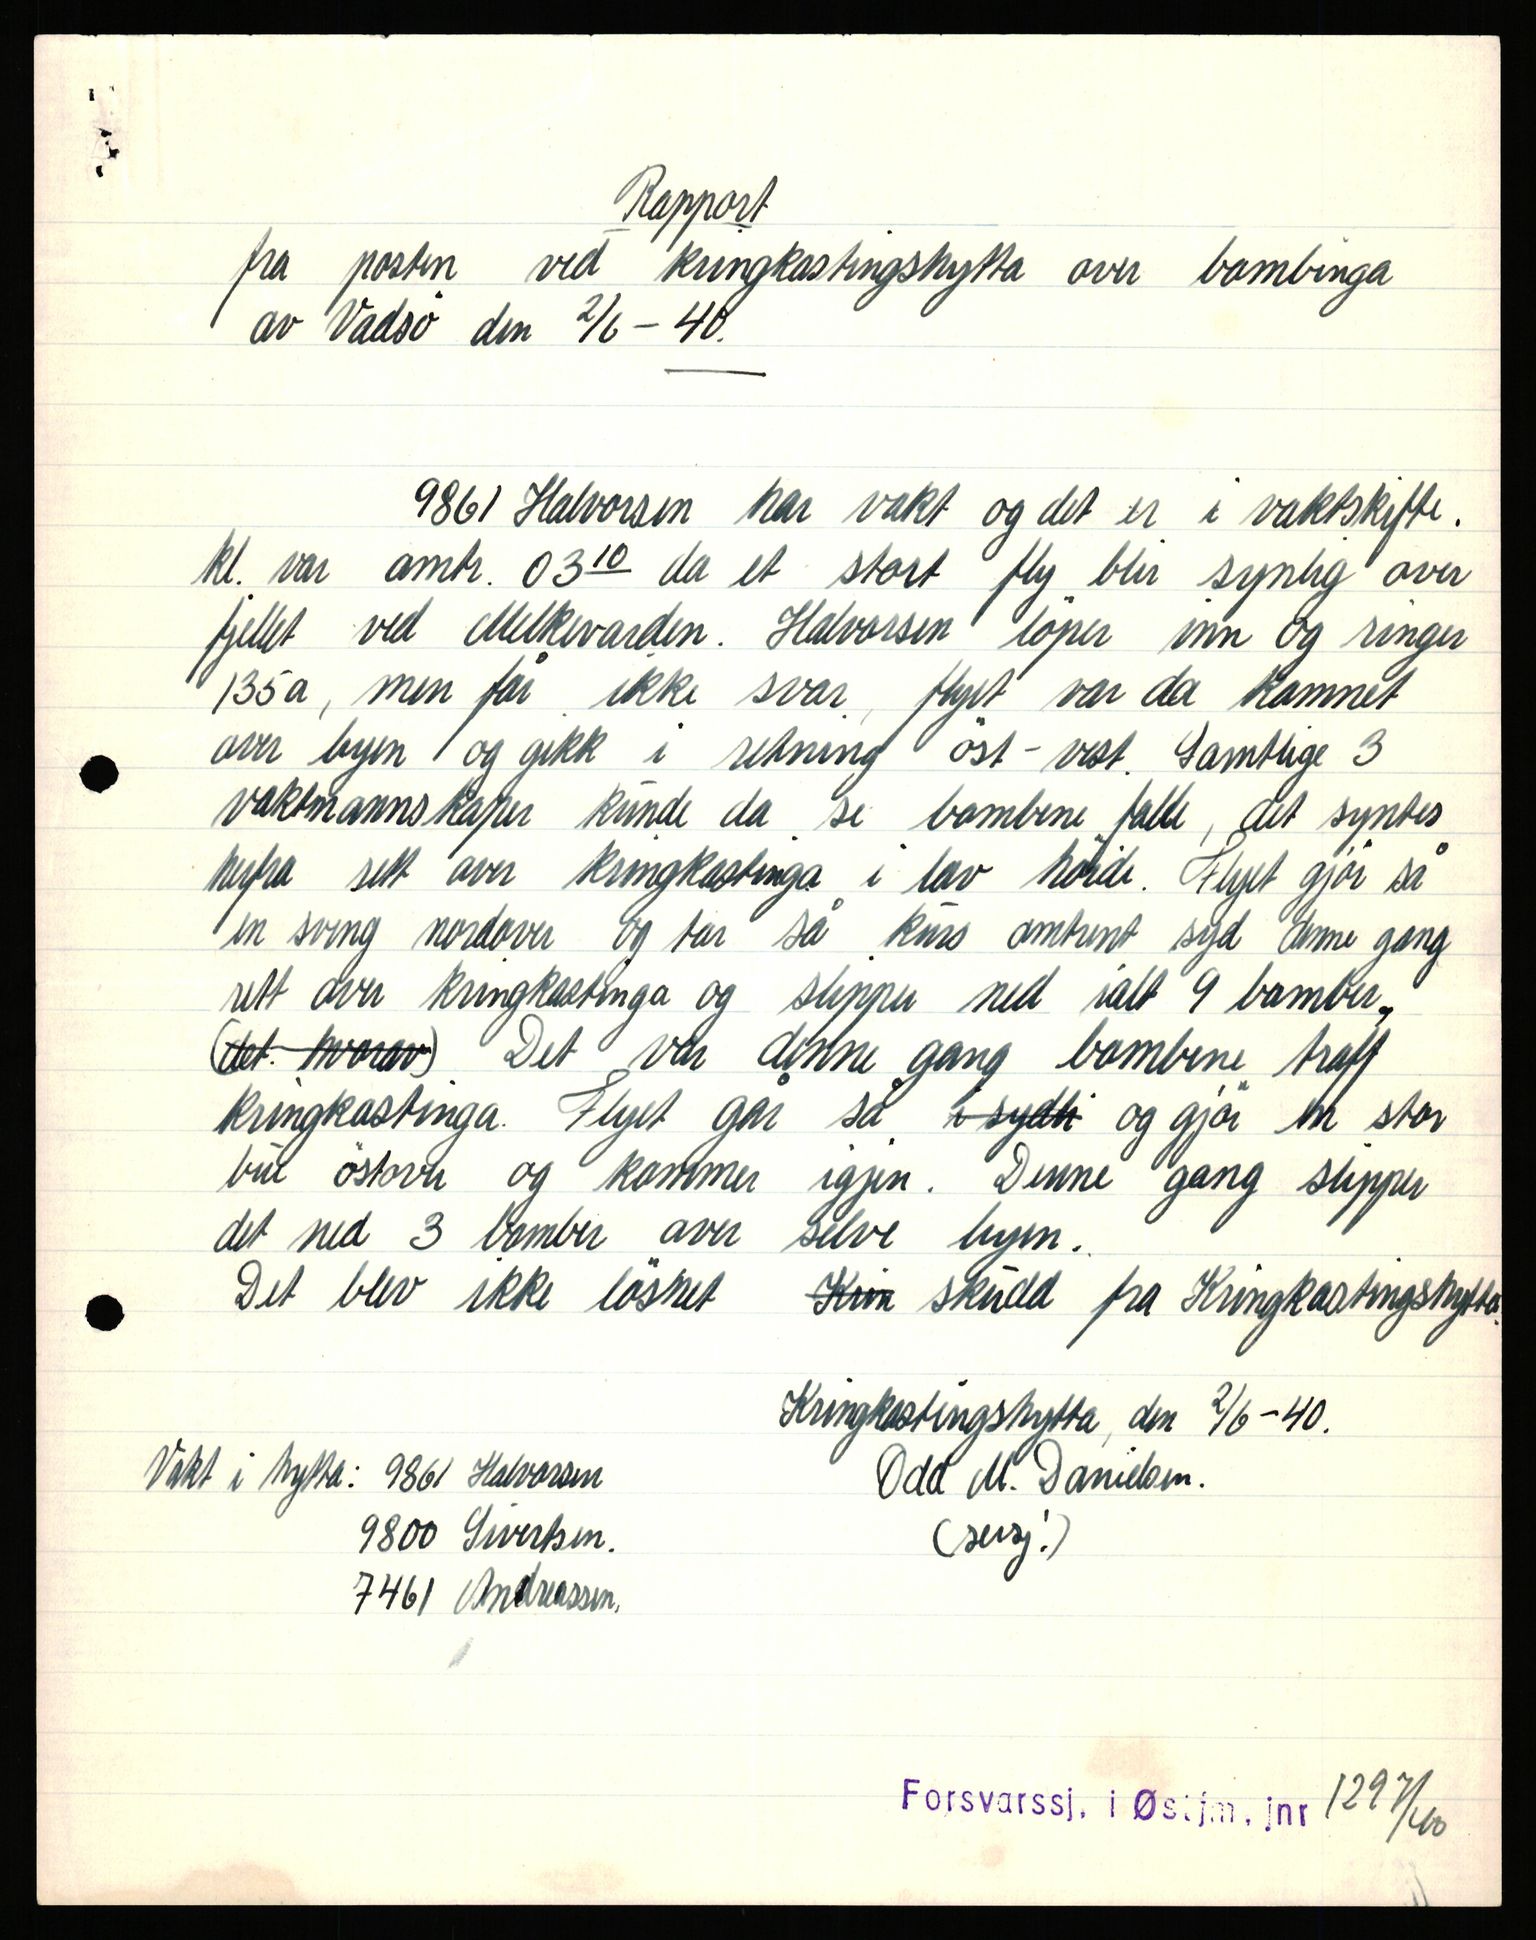 Rapport
fra posten ved kringkastingshytta over bombinga
av Vadsö den 2/6 – 40.
9861 Halvorsen har vakt og det er i vaktskifte.
kl. var omtr. 03 10 da et stort fly blir synlig over
fjellet ved Melkevarden. Halvorsen löper inn og ringer
135a, men får ikke svar, flyet var da kommet
over byen og gikk i retning öst – vest. Samtlige 3
vaktmannskaper kunde da se bombene falle, det syntes
herfra rett over kringkastinga i lav höide. Flyet gjör så
en sving nordover og tar så kurs omtrent syd denne gang
rett over kringkastinga og slipper ned ialt 9 bomber,
(det hvorav) Det var denne gang bombene traff
kringkastinga. Flyet går så i sydli og gjör en stor
bue östover og kommer igjen. Denne gang slipper
det ned 3 bomber over selve byen.
Det blev ikke lösnet Krin skudd fra Kringkastingshytta.
Kringkastingshytta, den 2/6 – 40.
Odd M. Danielsen.
(sersj.)
Vakt i hytta: 9861 Halvorsen
9800 Sivertsen.
7461 Andreassen.
Forsvarssj. i Østfm. jnr 1297/40